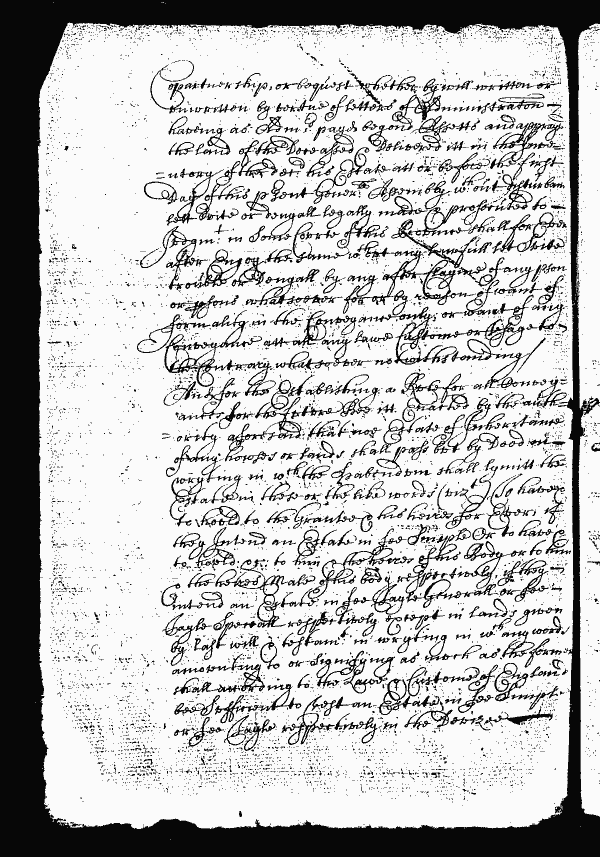 Copartnership, or bequest whether by will written or
unwritten by vertue of letters of Administraton
having as Adm:rs payed beyond Assetts and apprized
the land of the Deceased & delivered itt in the Inve=
=ntory of the dec:ds his Estate att or before the first
Day of this p'sent Gener:ll Assembly w:thout disturban
lett Suite or Denyall legally made & prosecuted to
Judgm:t in Some Courte of this Province shall for Ever
after Enjoy the same w:thout any lawfull lett Suite
trouble or Denyall by any after Clayme of any p'son
or p'sons what soever for or by reason of want of
formality in the Conveyance only, or want of any
Conveyance att all any law Custome or Usage to
the Contrary what soever notwithstanding
And for the Establishing a Rule for all Convey=
ances for the future Bee itt Enacted by the auth=
=ority aforesaid that noe Estate of Inheritance
of any houses or lands shall pass but by Deed in
wryting in w:ch the Habendum shall lymitt the
Estate in these or the like words (viz:t) (To have &
to hould to the Grantee & his heires for Ever) if
they Intend an Estate in fee Simple Or to have &
to hould &c: to him & the heires of his Body or to him
& the heires Male of his body respectively if they
Intend an Estate in fee Tayle Generall or fee
Tayle Speciall respectively except in lands given
by last will & testam:t in wryting in w:ch any words
amounting to or Signifying as much as the former
shall according to the Lawes & Customes of England
bee Sufficient to vest an Estate in fee Simple
or fee Tayle respectively in the Devizee